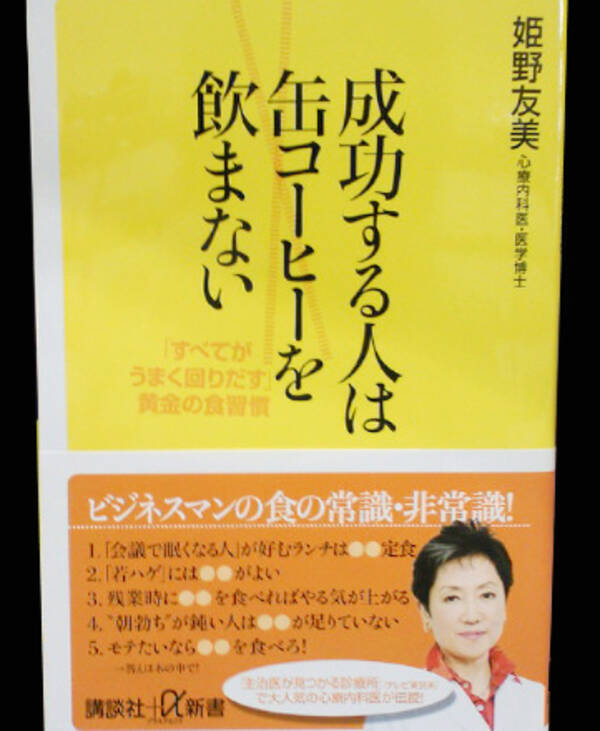 姫野友美
心療内科医・医学博士
成功する人は
缶コーヒーを
飲まない
「すべてが
うまく回りだす」
黄金の食習慣
ビジネスマンの食の常識・非常識!
1.「会議で眠くなる人」が好むランチは●●定食
2.「若ハゲ」には●●がよい
3. 残業時に●●を食べればやる気が上がる
4. “朝勃ち”が鈍い人は●●が足りていない
5. モテたいなら●●を食べろ!
→答えは本の中で!
「主治医が見つかる診療所」(テレビ東京系)
で大人気の心療内科医が伝授!
講談社+α新書